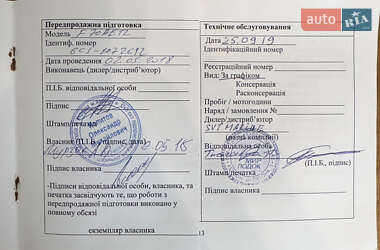 AUTO.RIA
Передпродажна підготовка
Модель F70AETL
Ідентиф. номер
6CJ-1022092
Дата проведення 02.05.2018
Виконавець (дилер/дистриб'ютор)
П.І.Б. відповідальної особи
Підпис
Штамп/печатка
Власник (П.І.Б., підпис, дата)
05 18
Підпис власника
-Підписи відповідальної особи, власника, та
печатка засвідчують те, що роботи з
передпродажної підготовки виконано у
повному обсязі
екземпляр власника
Технічне обслуговування
Дата 25.09.19
Ідентифікаційний номер
Реєстраційний номер
Вид: За графіком
Консервація
Расконсервація
Пробіг / мотогодини
Наряд / замовлення №
Дилер/дистриб'ютор
SVT MARINE
(назва компанії)
Відповідальна особа
(П.І.Б., підпис)
Штамп/печатка
МИР
ЛОДОК
Підпис власника
13